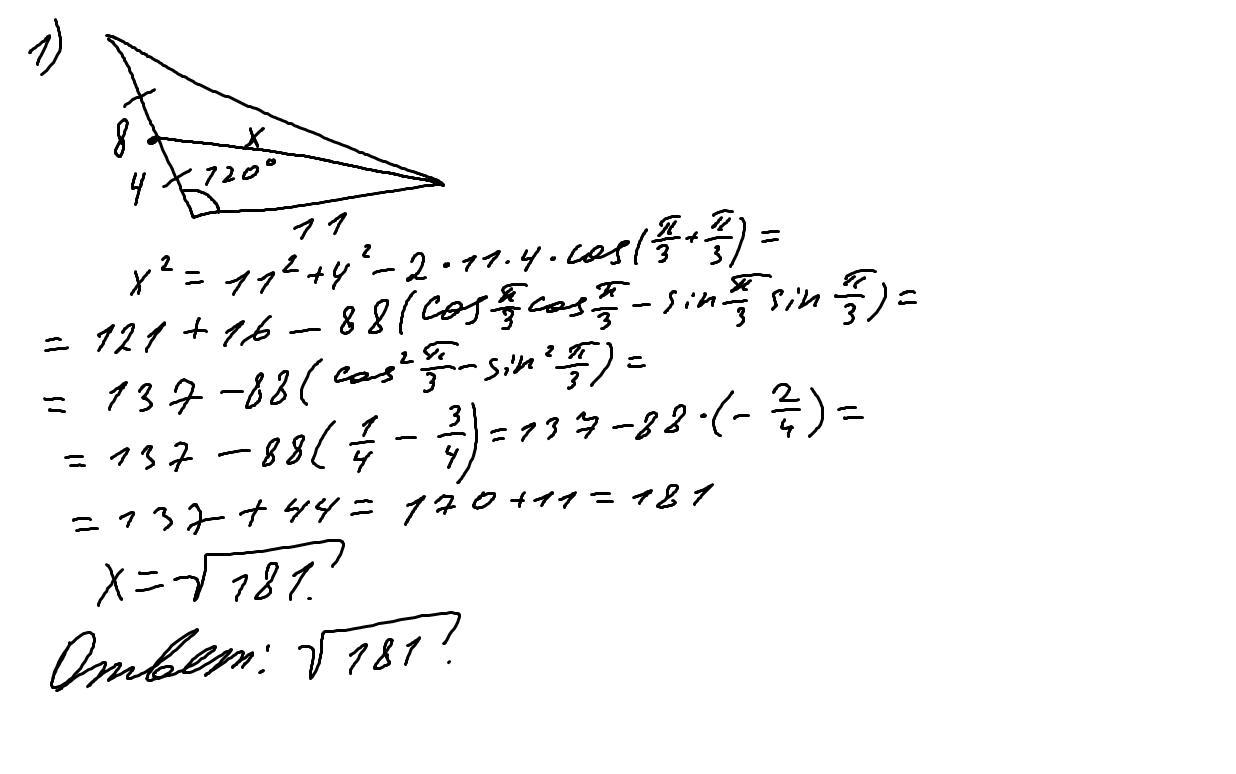 1)
8
x
4
120°
11
x² = 11² + 4² - 2 · 11 · 4 · cos(π/3 + π/3) =
= 121 + 16 - 88(cos π/3 cos π/3 - sin π/3 sin π/3) =
= 137 - 88(cos² π/3 - sin² π/3) =
= 137 - 88(1/4 - 3/4) = 137 - 88 · (- 2/4) =
= 137 + 44 = 170 + 11 = 181
x = √181.
Ответ: √181.